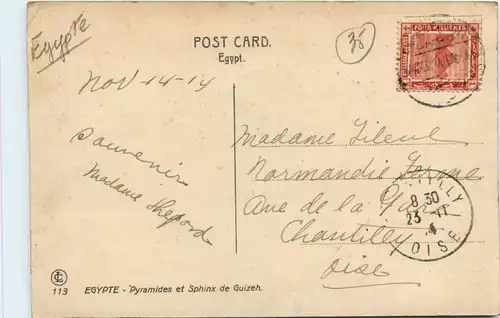 Egypte
35
POST CARD.
Egypt.
Nov 14-14
Souvenir
Madame Shepord
Madame
Normandie Ferme
Ave de la Gare
Chantilly
Oise
8 30
23 11
OISE
113 EGYPTE - Pyramides et Sphinx de Guizeh.